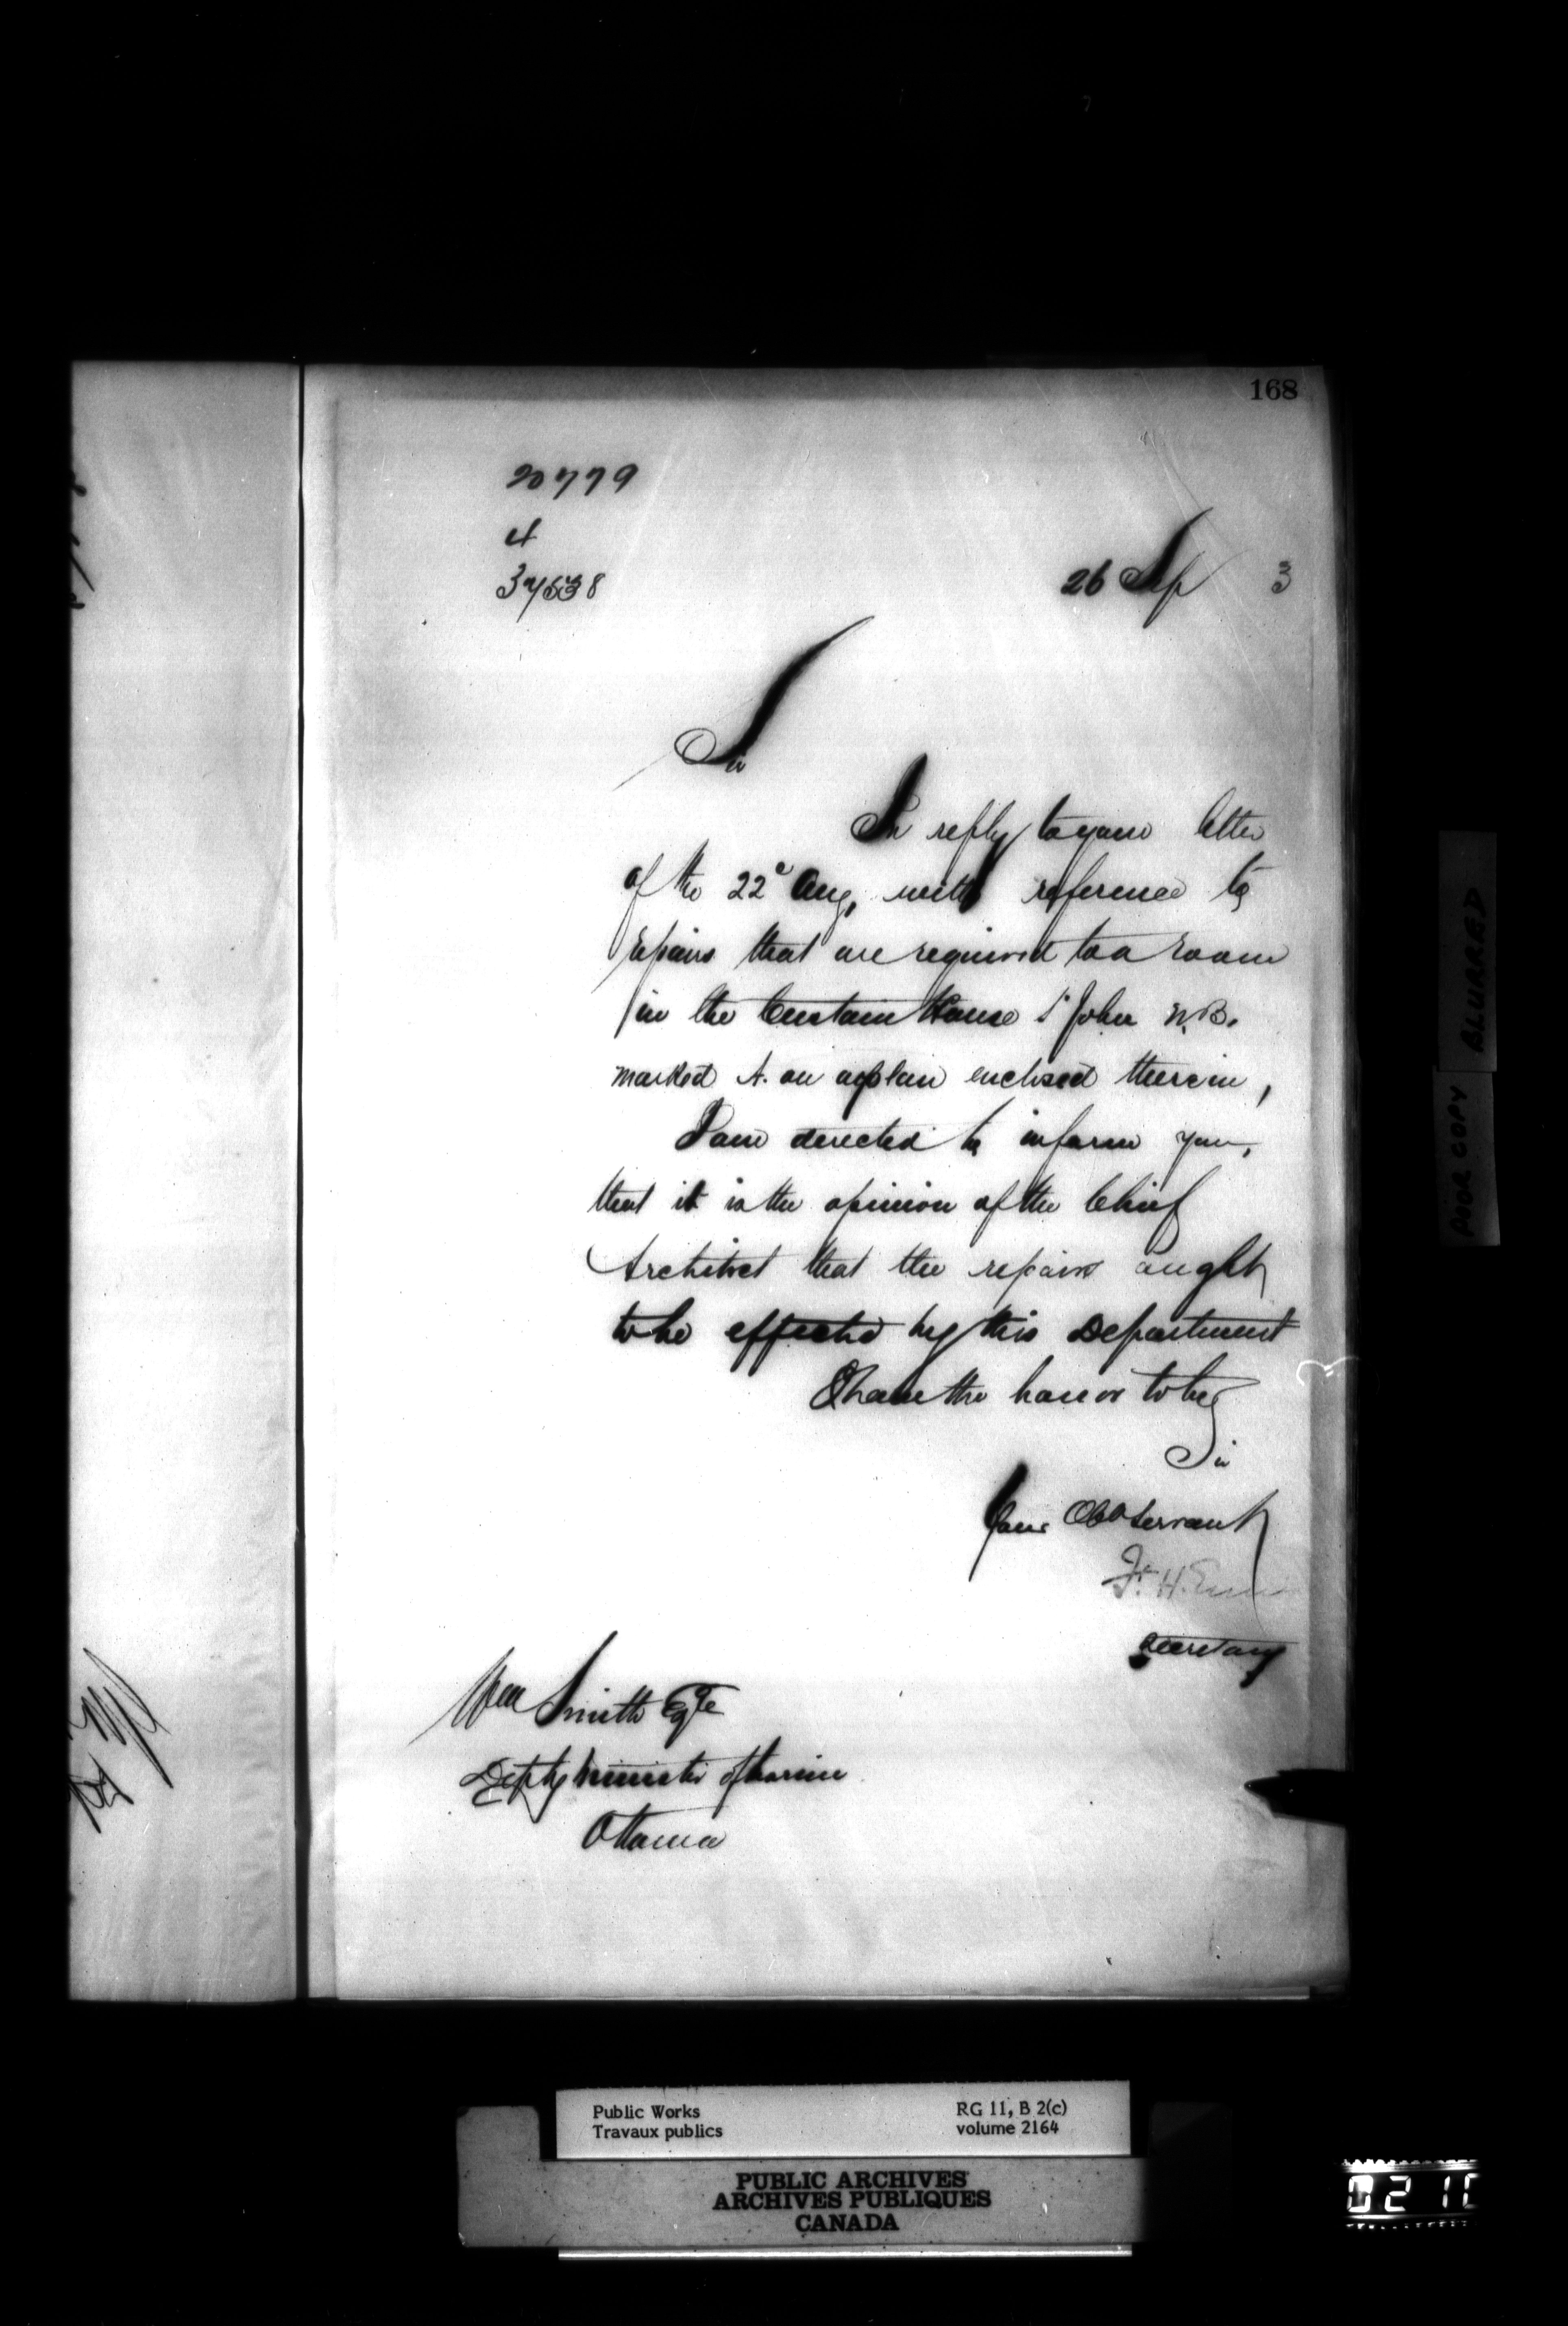 168
20779
4
37538
26 Sep 3
Sir
In reply to your letter
of the 22d Aug, with reference to
repairs that are required to a room
in the Custom House St John N.B.
marked A. on a plan enclosed therein,
I am directed to inform you,
that it is the opinion of the Chief
Architect that the repairs ought
to be effected by this Department
I have the honor to be
Sir
Your Obt Servant
F. H. Ennis
Secretary
Wm Smith Esqe
Depty Minister of Marine
Ottawa
POOR COPY BLURRED
Public Works
Travaux publics
RG 11, B 2(c)
volume 2164
PUBLIC ARCHIVES
ARCHIVES PUBLIQUES
CANADA
0210